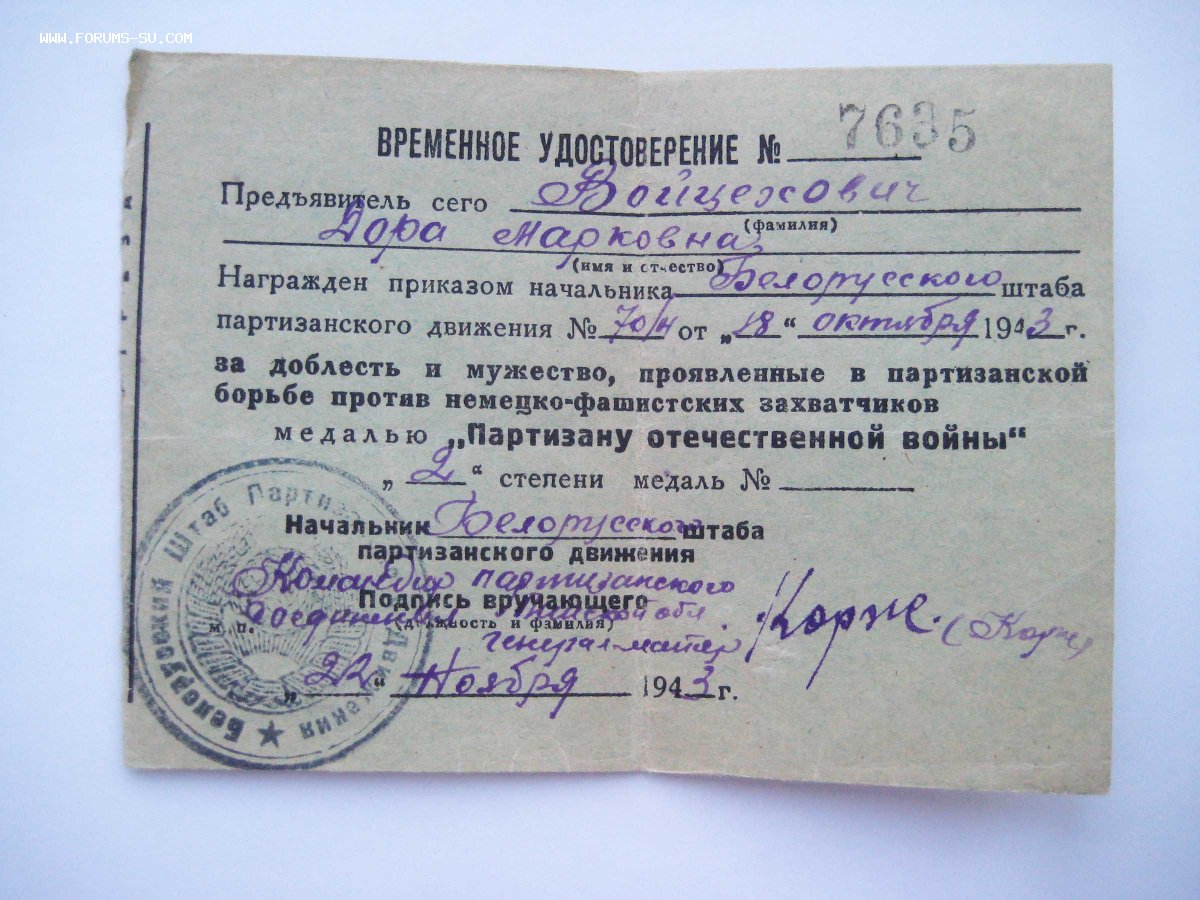 WWW.FORUMS-SU.COM
ВРЕМЕННОЕ УДОСТОВЕРЕНИЕ № 7635
Предъявитель сего Войцехович
(фамилия)
Дора Марковна
(имя и отчество)
Награжден приказом начальника Белорусского штаба
партизанского движения № 70/н от „18“ октября 1943 г.
за доблесть и мужество, проявленные в партизанской
борьбе против немецко-фашистских захватчиков
медалью „Партизану отечественной войны“
„2“ степени медаль №
Начальник Белорусского штаба
партизанского движения
Командир партизанского
Подпись вручающего
соединения Пинской обл.
м. п. (должность и фамилия)
генерал-майор Корж. (Корж)
„22“ Ноября 1943 г.
Белорусский Штаб Партизанского Движения